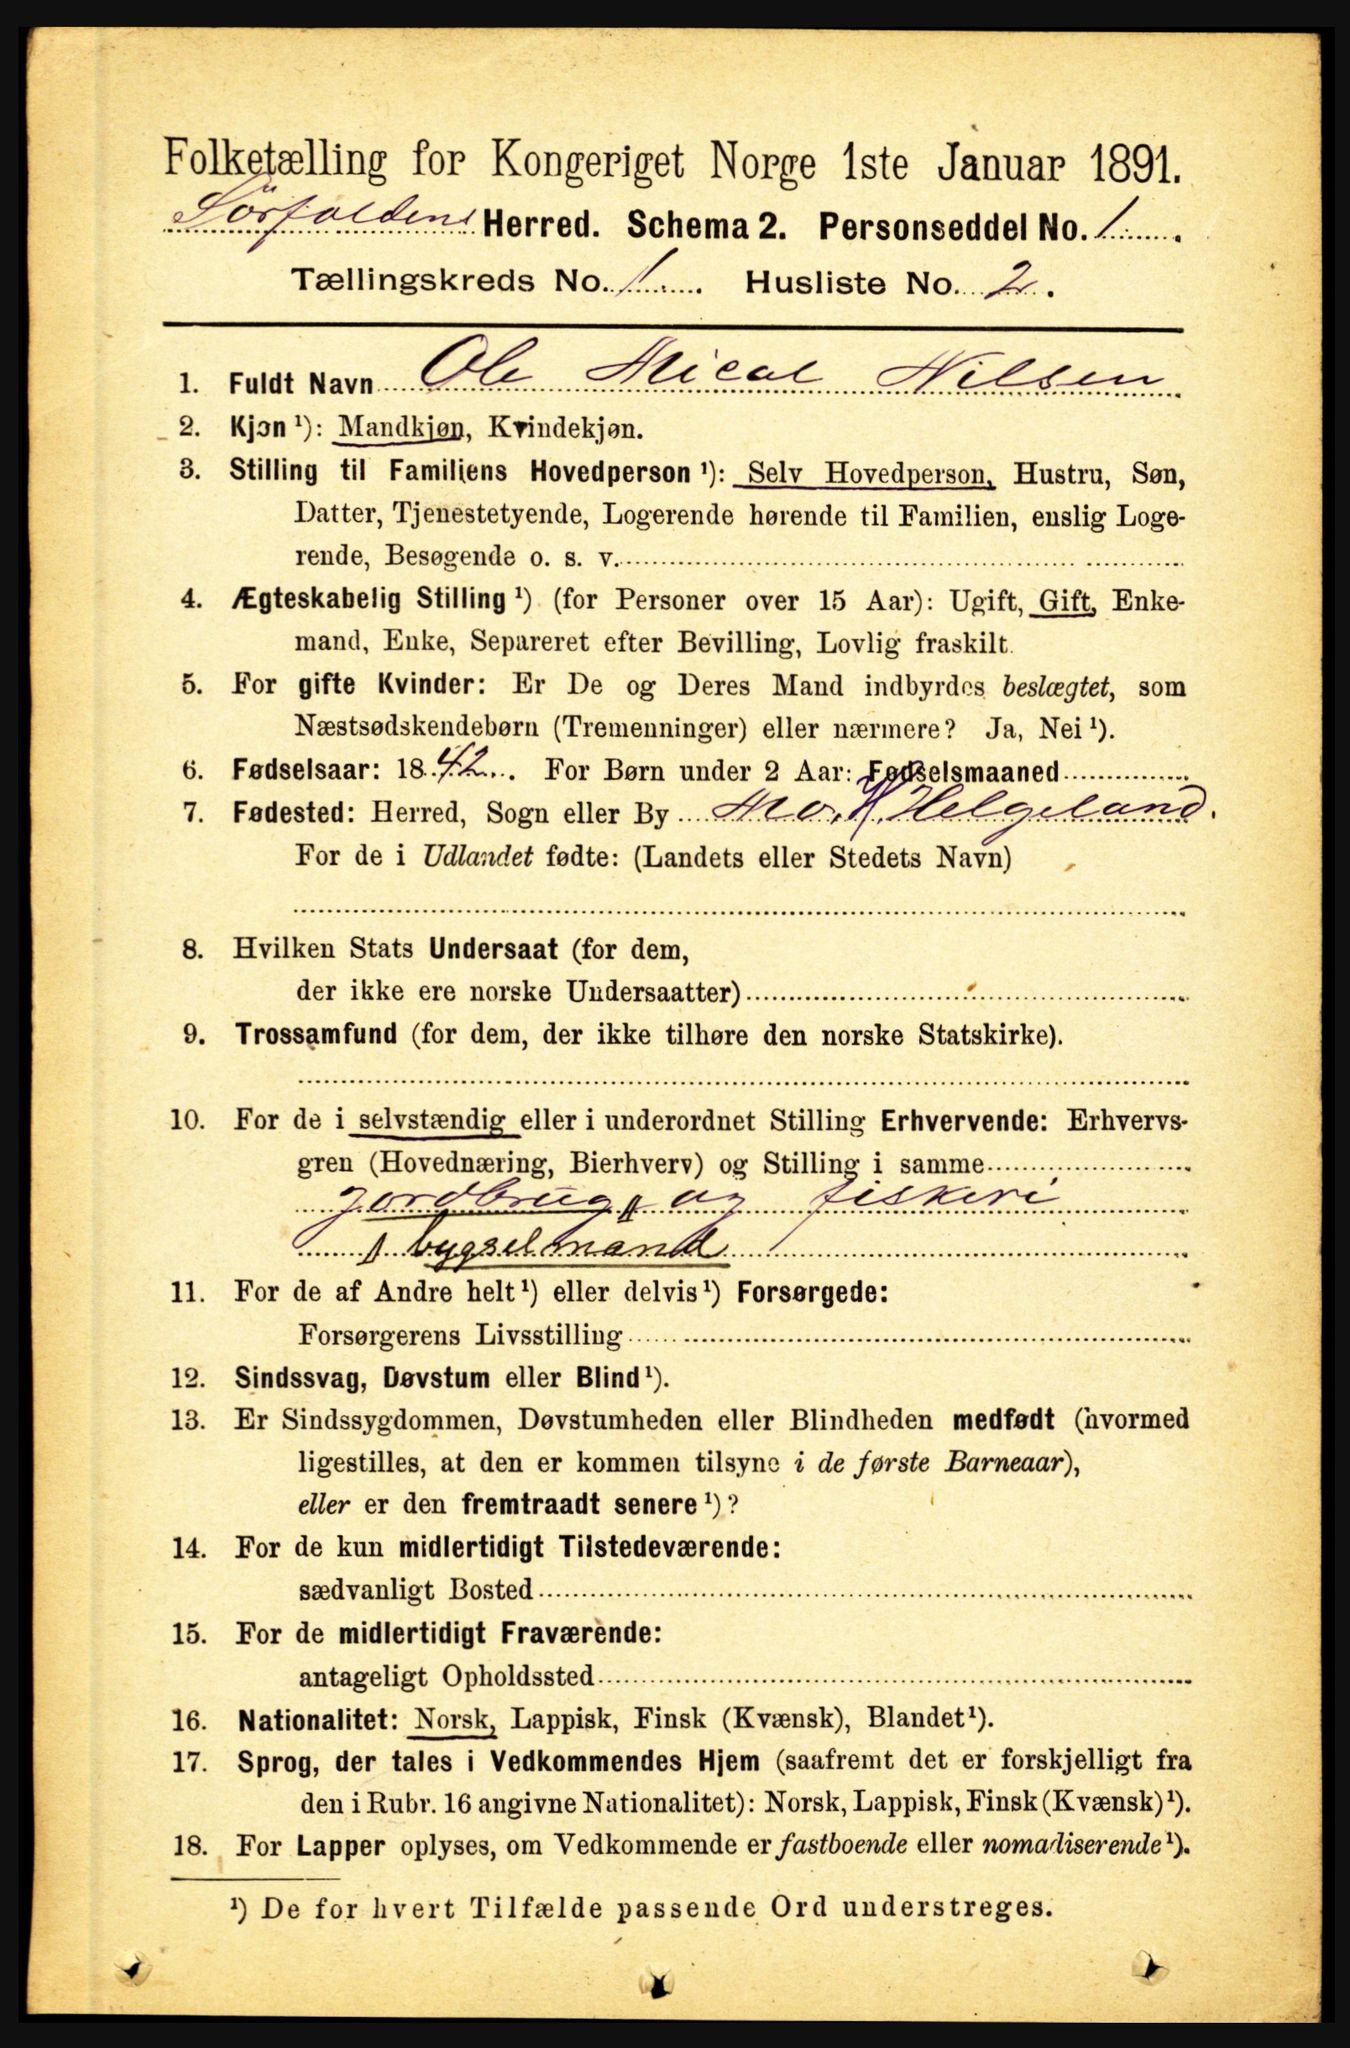 Folketælling for Kongeriget Norge 1ste Januar 1891.
Sörfoldens Herred. Schema 2. Personseddel No. 1.
Tællingskreds No. 1. Husliste No. 2.
1. Fuldt Navn Ole Mical Nilsen
2. Kjøn ¹): Mandkjøn, Kvindekjøn.
3. Stilling til Familiens Hovedperson ¹): Selv Hovedperson, Hustru, Søn,
Datter, Tjenestetyende, Logerende hørende til Familien, enslig Loge-
rende, Besøgende o. s. v.
4. Ægteskabelig Stilling ¹) (for Personer over 15 Aar): Ugift, Gift, Enke-
mand, Enke, Separeret efter Bevilling, Lovlig fraskilt.
5. For gifte Kvinder: Er De og Deres Mand indbyrdes beslægtet, som
Næstsødskendebørn (Tremenninger) eller nærmere? Ja, Nei ¹).
6. Fødselsaar: 1842. For Børn under 2 Aar: Fødselsmaaned
7. Fødested: Herred, Sogn eller By Mo, Helgeland.
For de i Udlandet fødte: (Landets eller Stedets Navn)
8. Hvilken Stats Undersaat (for dem,
der ikke ere norske Undersaatter)
9. Trossamfund (for dem, der ikke tilhøre den norske Statskirke).
10. For de i selvstændig eller i underordnet Stilling Erhvervende: Erhvervs-
gren (Hovednæring, Bierhverv) og Stilling i samme
jordbrug og fiskeri
bygselmand
11. For de af Andre helt ¹) eller delvis ¹) Forsørgede:
Forsørgerens Livsstilling
12. Sindssvag, Døvstum eller Blind ¹).
13. Er Sindssygdommen, Døvstumheden eller Blindheden medfødt (hvormed
ligestilles, at den er kommen tilsyne i de første Barneaar),
eller er den fremtraadt senere ¹)?
14. For de kun midlertidigt Tilstedeværende:
sædvanligt Bosted
15. For de midlertidigt Fraværende:
antageligt Opholdssted
16. Nationalitet: Norsk, Lappisk, Finsk (Kvænsk), Blandet ¹).
17. Sprog, der tales i Vedkommendes Hjem (saafremt det er forskjelligt fra
den i Rubr. 16 angivne Nationalitet): Norsk, Lappisk, Finsk (Kvænsk) ¹).
18. For Lapper oplyses, om Vedkommende er fastboende eller nomadiserende ¹).
¹) De for hvert Tilfælde passende Ord understreges.